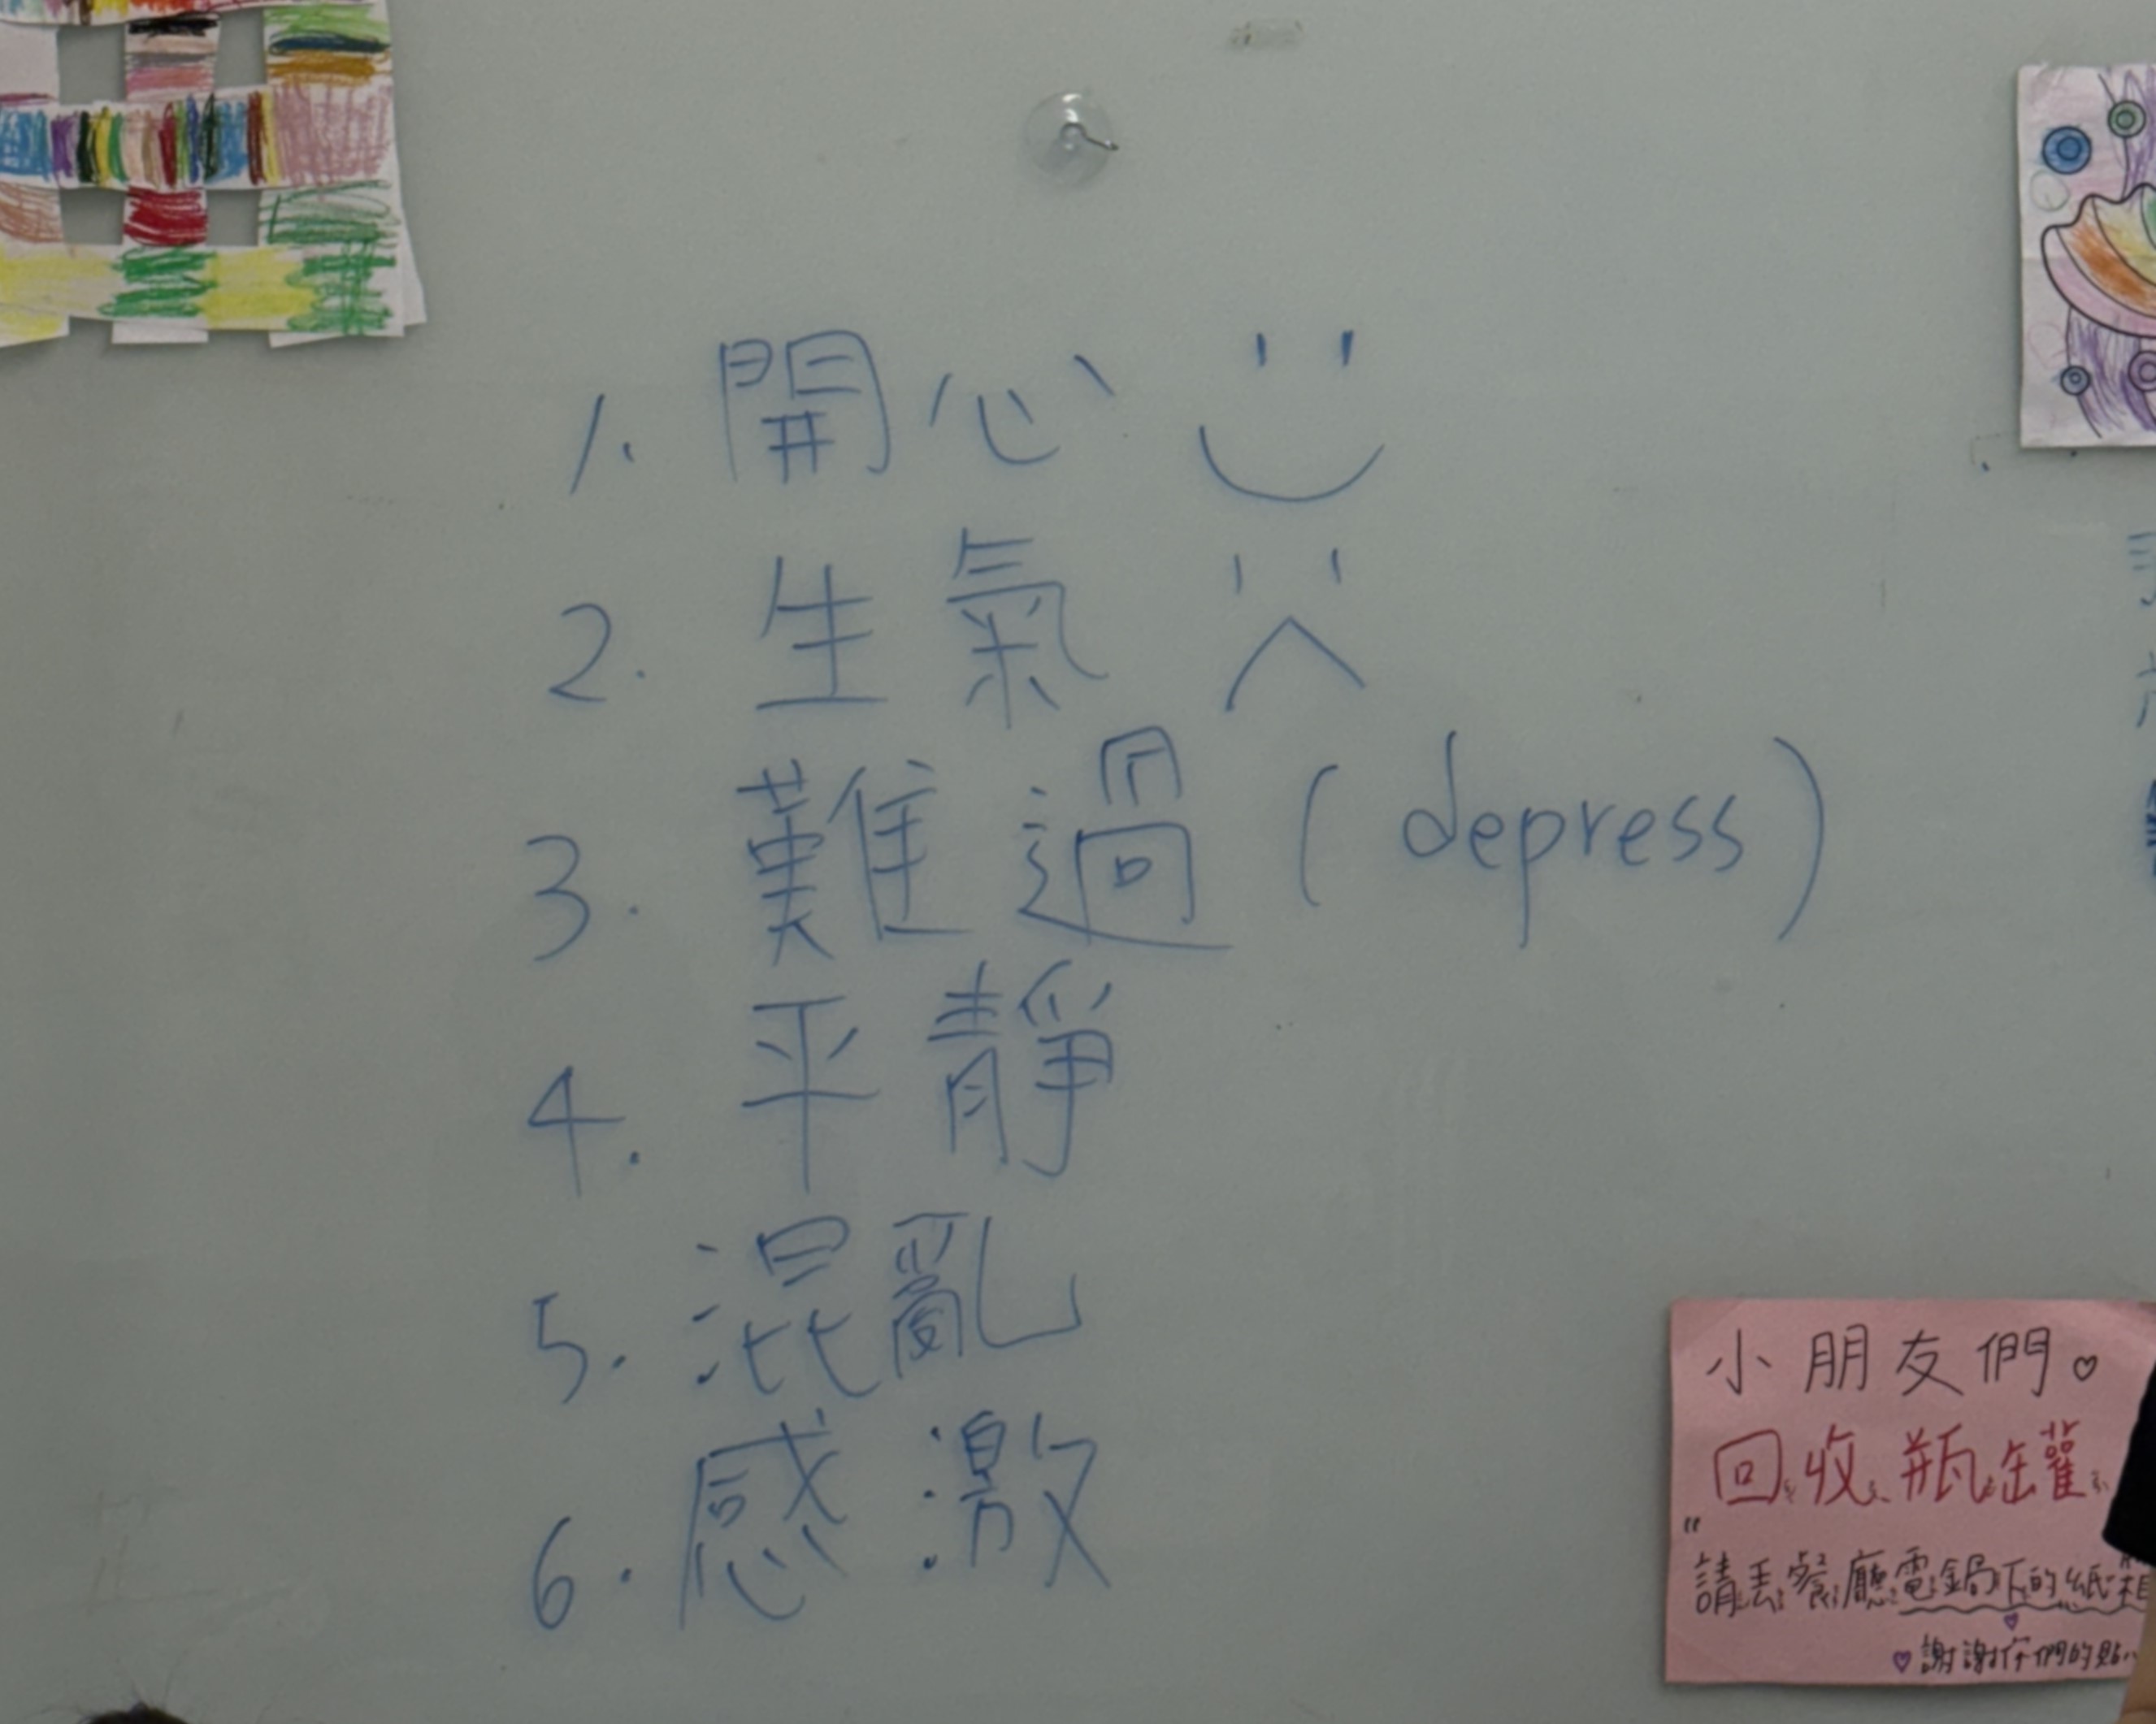 1. 開心
2. 生氣
3. 難過 (depress)
4. 平靜
5. 混亂
6. 感激
小朋友們。
回收瓶罐
"請丟餐廳電鍋下的紙箱
謝謝你們的貼